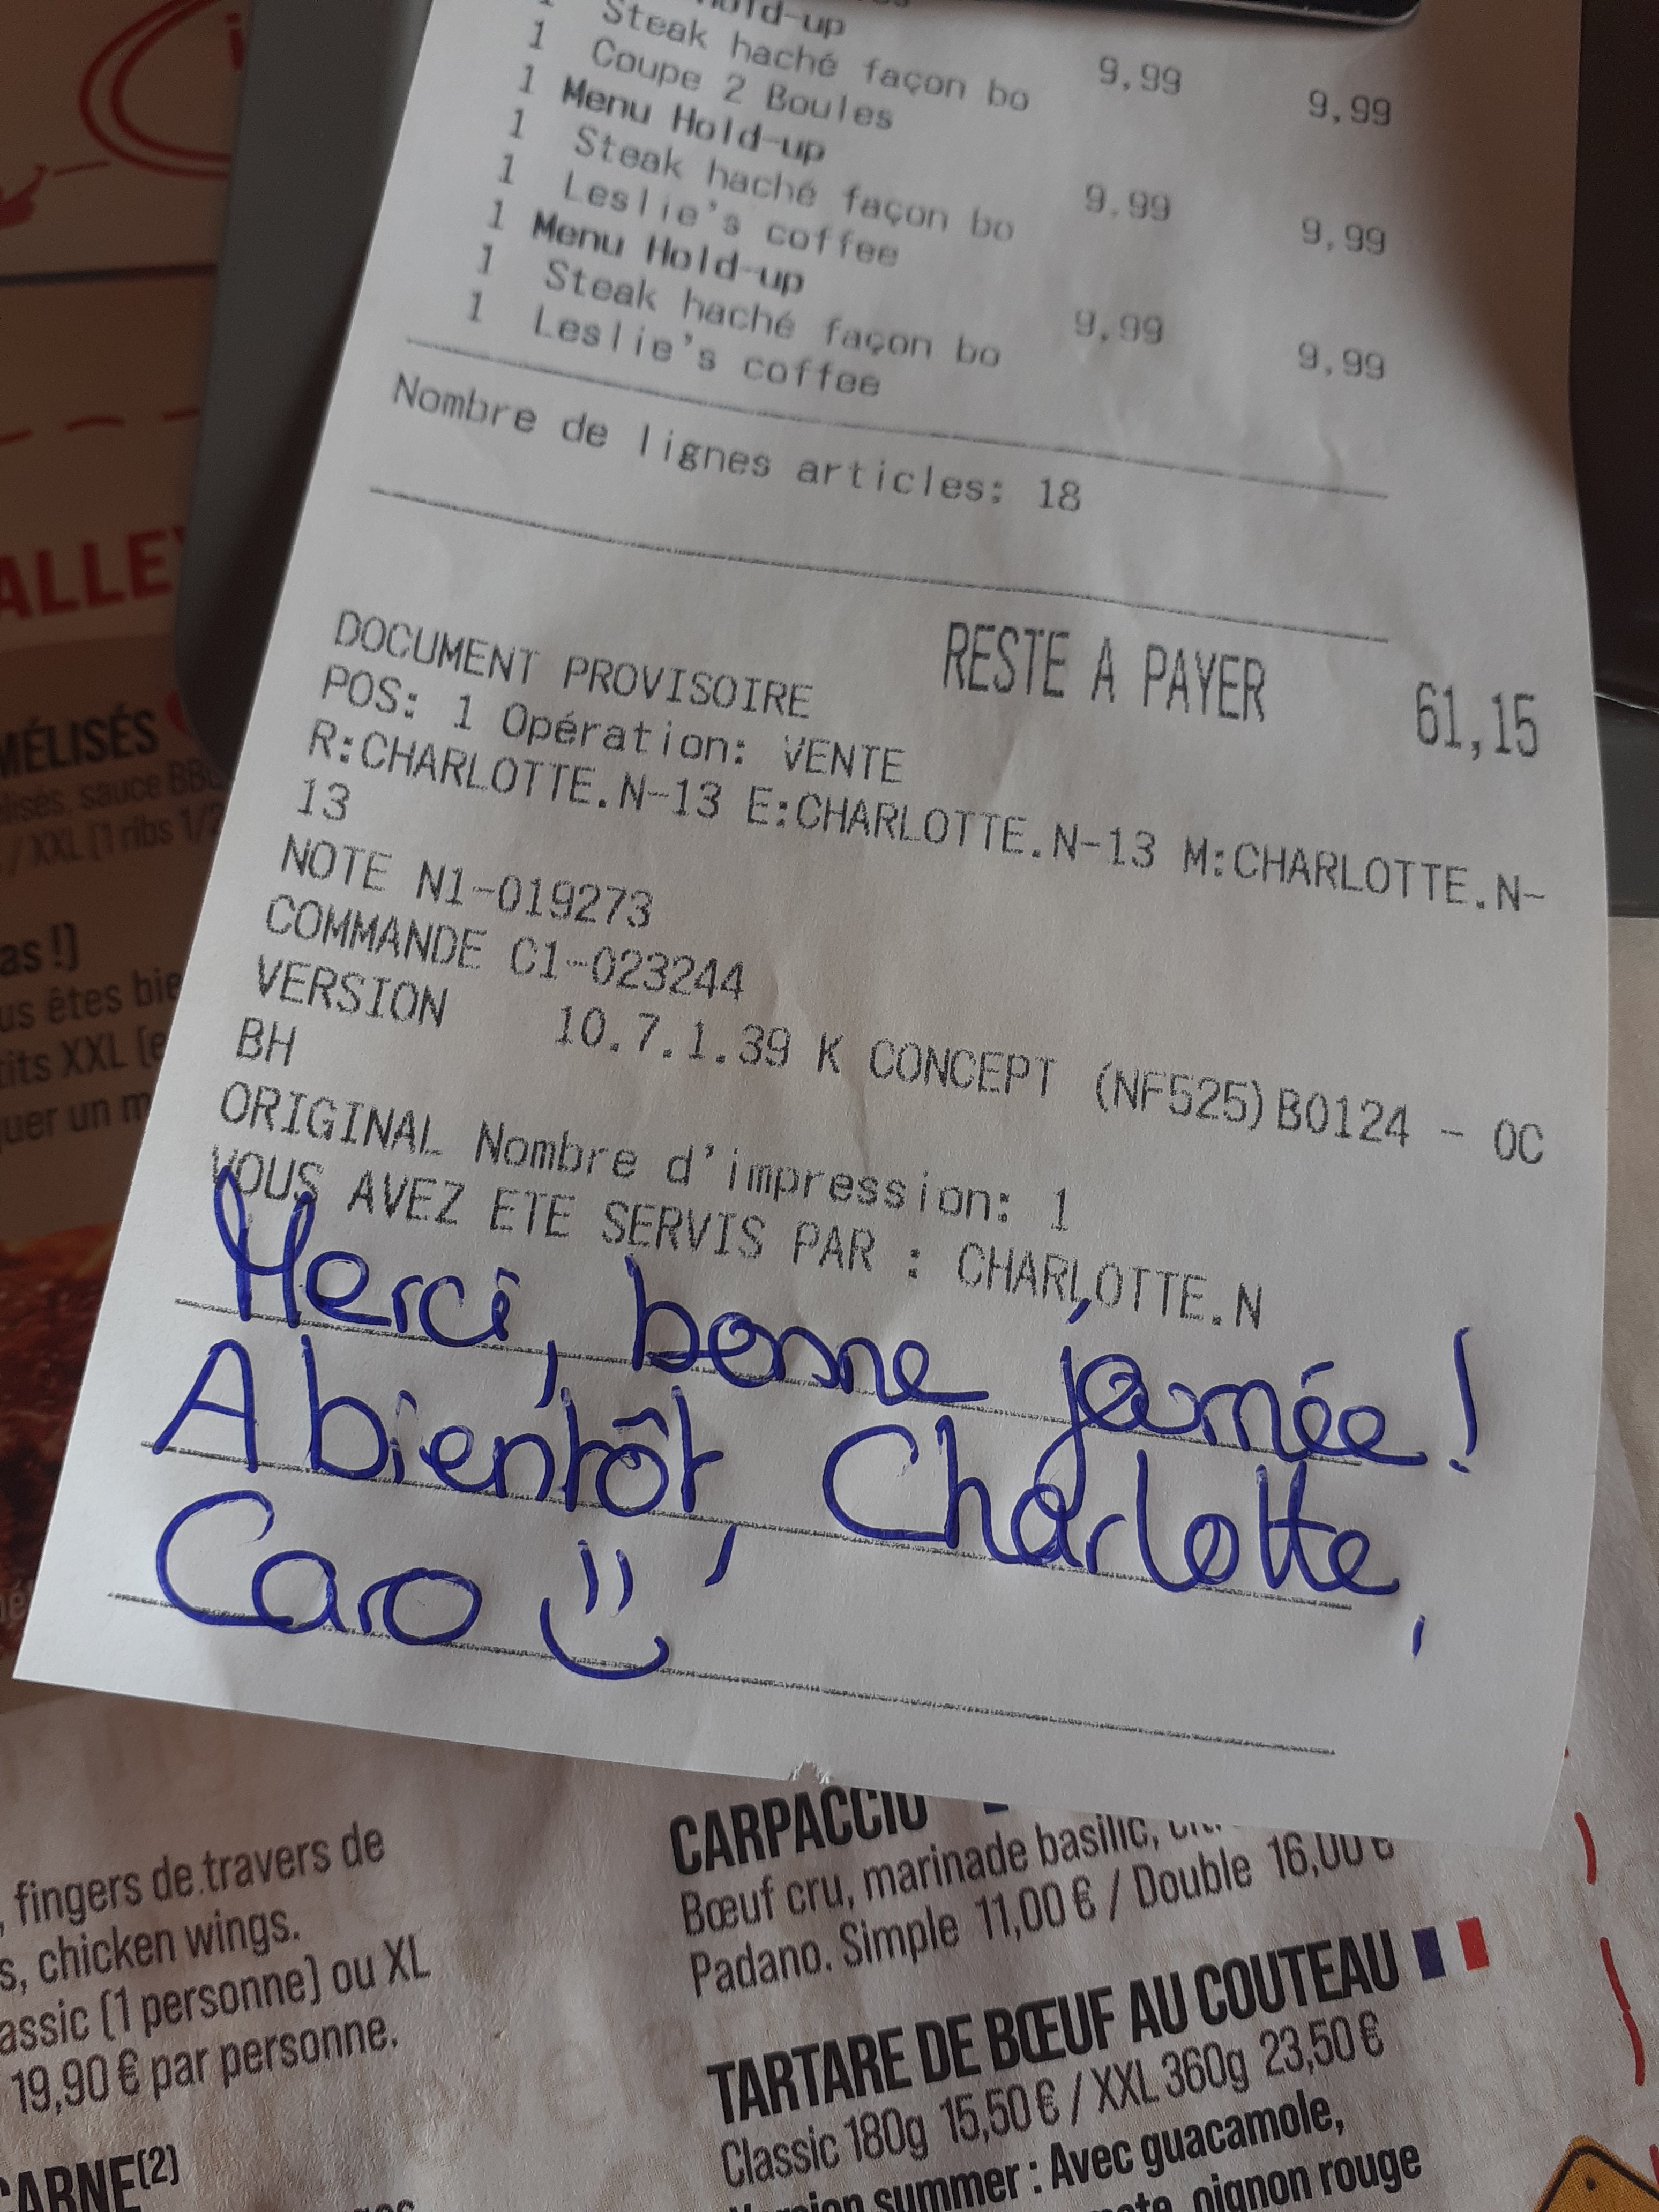 Hold-up 9,99 9,99
1 Steak haché façon bo
1 Coupe 2 Boules
1 Menu Hold-up 9,99 9,99
1 Steak haché façon bo
1 Leslie's coffee
1 Menu Hold-up 9,99 9,99
1 Steak haché façon bo
1 Leslie's coffee
Nombre de lignes articles: 18
RESTE A PAYER 61,15
DOCUMENT PROVISOIRE
POS: 1 Opération: VENTE
R:CHARLOTTE.N-13 E:CHARLOTTE.N-13 M:CHARLOTTE.N-
13
NOTE N1-019273
COMMANDE C1-023244
VERSION 10.7.1.39 K CONCEPT (NF525)B0124 - OC
BH
ORIGINAL Nombre d'impression: 1
VOUS AVEZ ETE SERVIS PAR : CHARLOTTE.N
Merci, bonne journée!
A bientôt, Charlotte,
Caro
MÉLISÉS
élisés, sauce BB
/ XXL (1 ribs 1/2
as !)
us êtes bie
tits XXL (e
quer un m
, fingers de travers de
s, chicken wings.
assic (1 personne) ou XL
19,90 € par personne.
CARNE(2)
CARPACCIO
Bœuf cru, marinade basilic,
Padano. Simple 11,00 € / Double 16,00 €
TARTARE DE BŒUF AU COUTEAU
Classic 180g 15,50 € / XXL 360g 23,50 €
Version summer : Avec guacamole,
oignon rouge